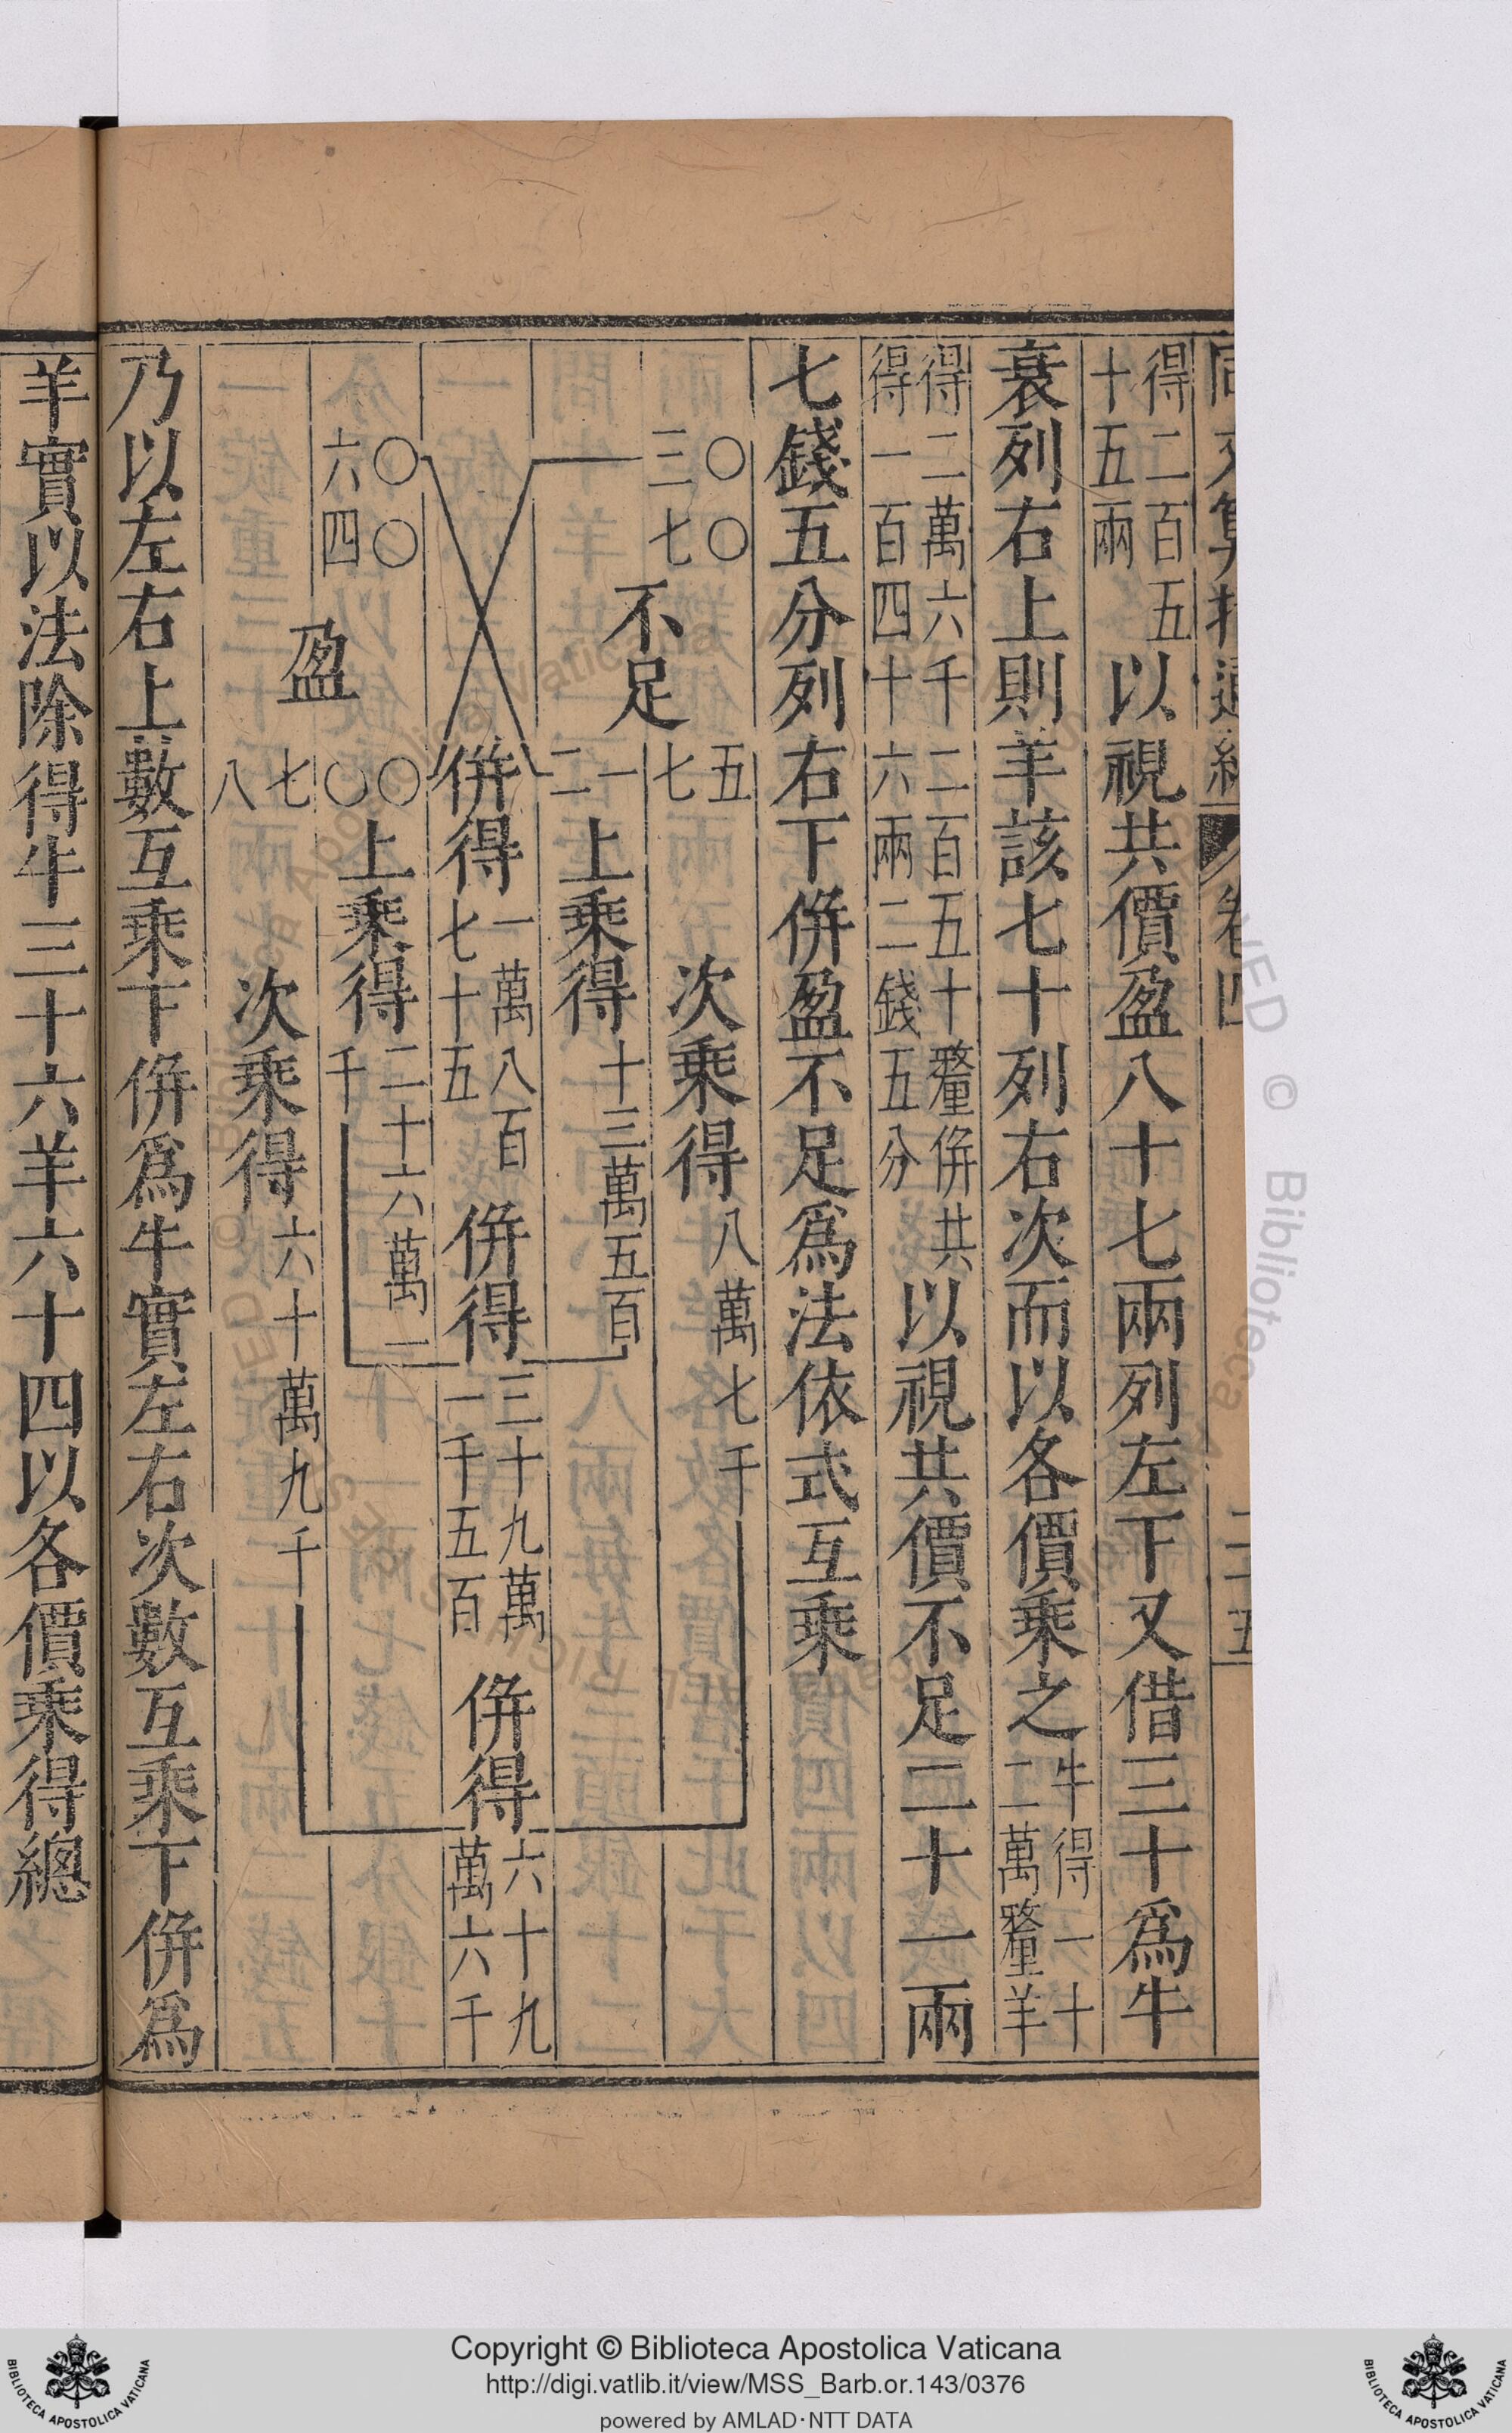 得二百五
十五兩
以視共價盈八十七兩列左下又借三十爲牛
衰列右上則羊該七十列右次而以各價乘之
牛得一十
二萬釐羊
得二萬六千二百五十釐併共
得一百四十六兩二錢五分
以視共價不足二十一兩
七錢五分列右下併盈不足爲法依式互乘
〇〇
三七
不足
五
七
一
二
次乘得
八萬七千
上乘得
十三萬五百
併得
一萬八百
七十五
併得
三十九萬
一千五百
併得
六十九
萬六千
〇〇
六四
盈
〇
〇
七
八
上乘得
二十六萬一
千
次乘得
六十萬九千
乃以左右上數互乘下併爲牛實左右次數互乘下併爲
羊實以法除得牛三十六羊六十四以各價乘得總
Copyright © Biblioteca Apostolica Vaticana
http://digi.vatlib.it/view/MSS_Barb.or.143/0376
powered by AMLAD·NTT DATA
BIBLIOTECA APOSTOLICA VATICANA
BIBLIOTECA APOSTOLICA VATICANA